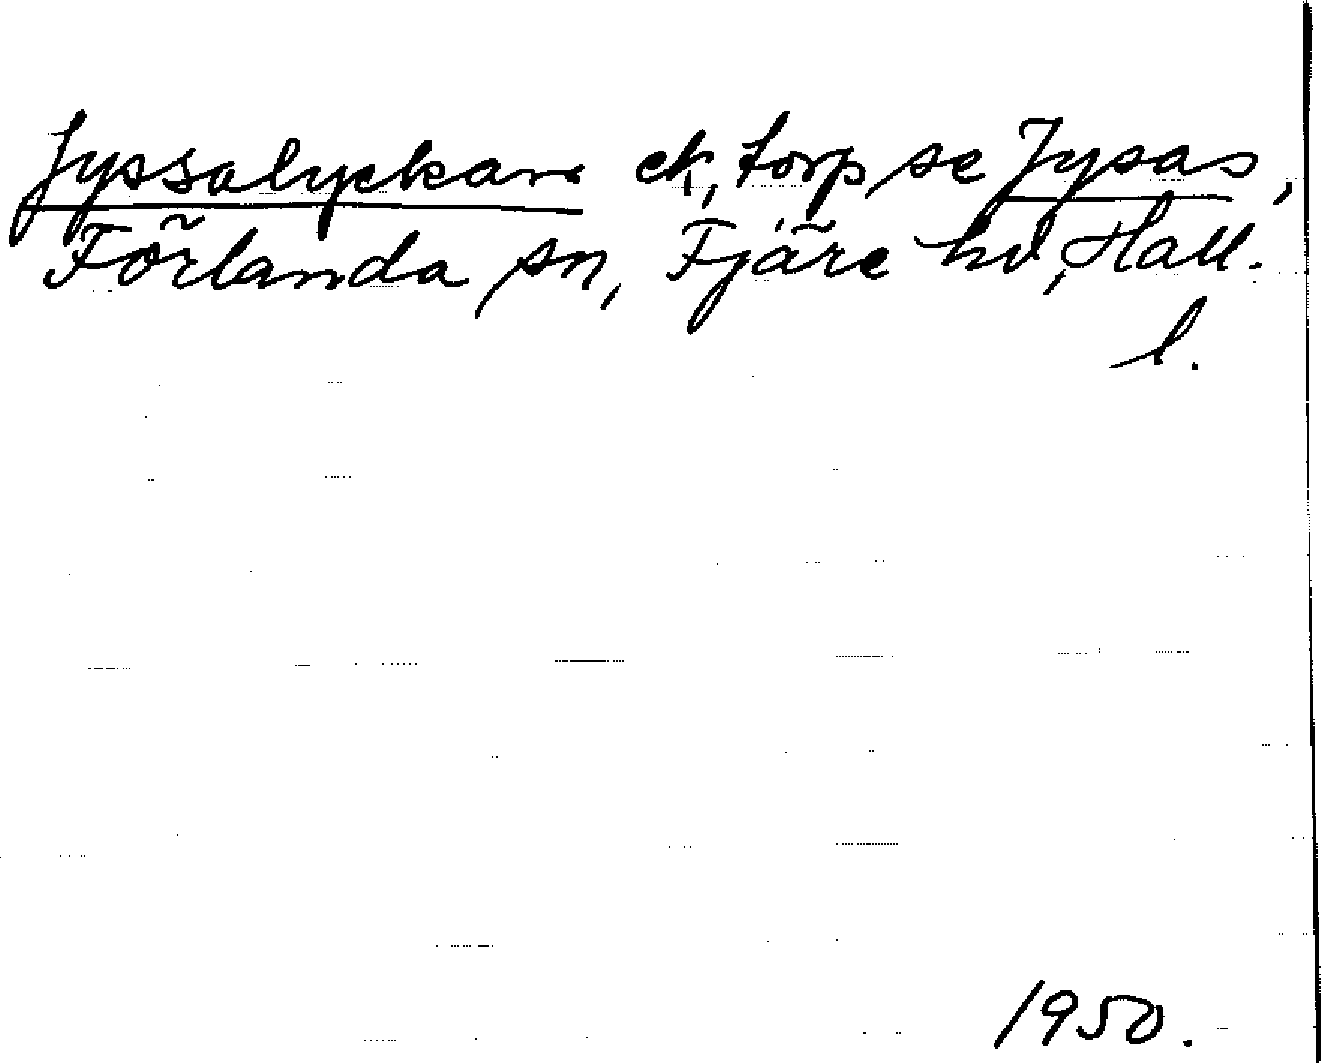 Jyssalyckan ek, torp, se Jysas,
Förlanda sn, Fjäre hd, Hall.
l.
1950.